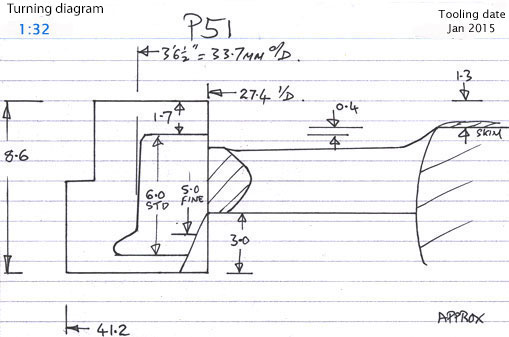 Turning diagram
1:32
P51
Tooling date
Jan 2015
3'6½" = 33.7MM O/D.
27.4 I/D.
1.3
0.4
1.7
SKIM
8.6
6.0
STD
5.0
FINE
3.0
41.2
APPROX